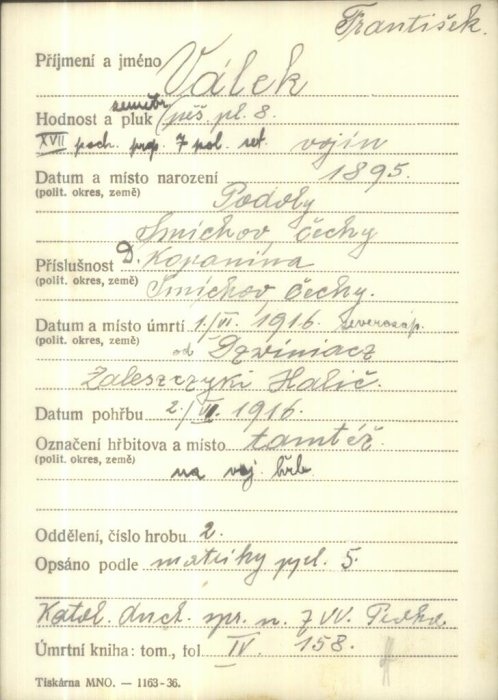 František.
Příjmení a jméno Válek
zeměbr
Hodnost a pluk pěš. pl. 8.
XVII poch. prp. 7 pol. set. vojín
Datum a místo narození 1895.
(polit. okres, země) Podoly
Smíchov, Čechy
Příslušnost D. Kopanina
(polit. okres, země) Smíchov, Čechy.
Datum a místo úmrtí 1./VI. 1916. severozáp.
(polit. okres, země) od Dzwiniacz
Zaleszczyki Halič.
Datum pohřbu 2./VI. 1916.
Označení hřbitova a místo tamtéž
(polit. okres, země) na voj. hřb.
Oddělení, číslo hrobu 2.
Opsáno podle matriky 5.
Katol. duch. spr. n. 7 VV.
Úmrtní kniha: tom., fol IV. 158.
Tiskárna MNO. — 1163-36.